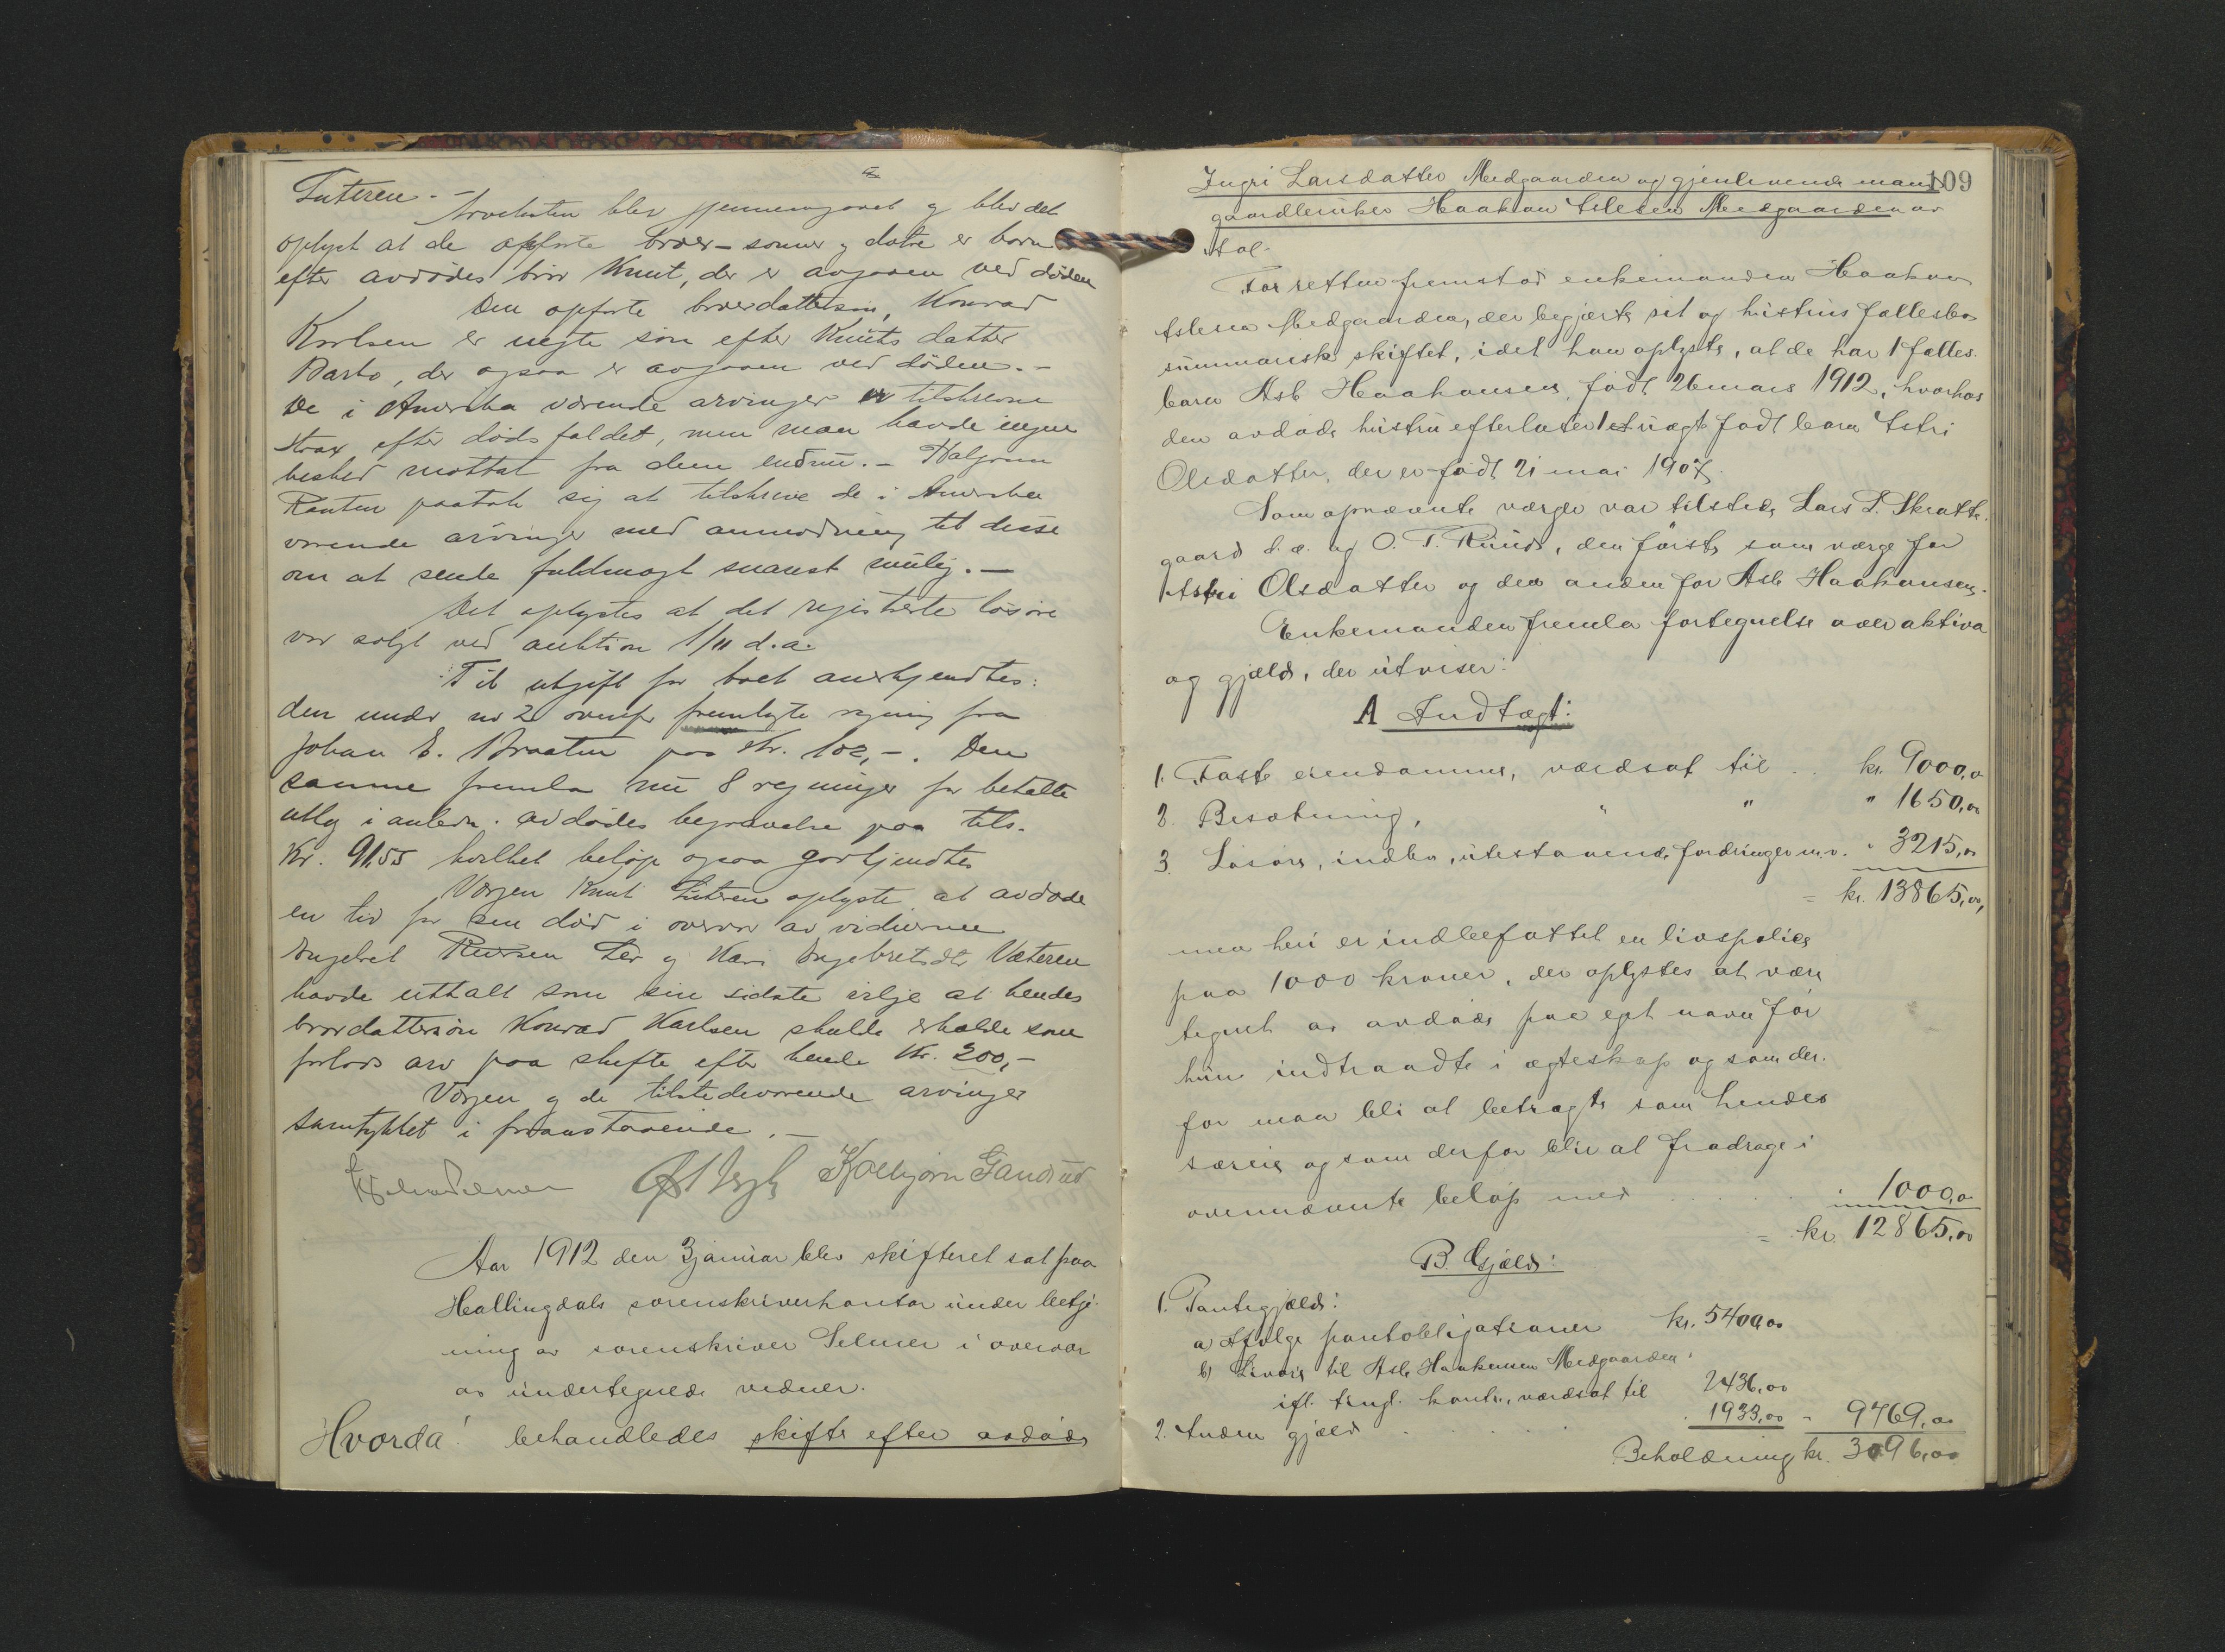 Tuteren. -
Arvelisten blev gjennemgaaet og blev det
oplyst at de opførte bror-sønner og døtre er børn
efter avdødes bror Knut, der er avgaaen ved døden
Den opførte brordatterssøn, Konrad
Karlsen er uegte søn efter Knuts datter
Barbo, der ogsaa er avgaaen ved døden. -
De i Amerika værende arvinger er tilskrevne
strax efter dødsfaldet, men man havde ingen
besked mottat fra dem endnu. - Halgrim
paatok sig at tilskrive de i Amerika
værende arvinger med anmodning til disse
om at sende fuldmagt snarest mulig. -
Det oplystes at det registrerte løsøre
var solgt ved auktion 1/11 d.a.
Til utgift for boet anerkjendtes:
den under nr 2 ovenfor fremlagte regning fra
Johan E. Braaten paa kr. 102,-. Den
samme fremla nu 8 regninger for betalte
utlæg i anledn. avdødes begravelse paa tils.
Kr. 91.55 hvilket beløp ogsaa godkjendtes
Værgen Knut Tuteren oplyste at avdøde
en tid før sin død i overvær av vidnerne
Engebret og Kari Engebretsdtr Væteren
havde uttalt som sin sidste vilje at hendes
brordattersøn Konrad Karlsen skulde erholde som
forlods arv paa skifte efter hende Kr. 200,-
Værgen og de tilstedeværende arvinger
samtykket i foranstaaende. -
Aar 1912 den 3 januar blev skifteret sat paa
Hallingdals sorenskriverkontor under betje-
ning av sorenskriver Selmer i overvær
av undertegnede vidner.
Hvorda! behandledes skifte efter avdøde
109
Ingri Larsdatter Medgaarden og gjenlevende mand
gaardbruker Haakon Aslesen Medgaarden av
Aal.
For retten fremstod enkemanden Haakon
Aslesen Medgaarden, der begjærte sit og hustrus fællesbo
summarisk skiftet, idet han oplyste, at de har 1 fælles-
barn Asle Haakonsen, født 26 mars 1912, hvorhos
den avdøde hustru efterlater 1 et uægte født barn Astri
Olsdatter, der er født 21 mai 1907.
Som opnævnte værger var tilstede Lars L. Skratte-
gaard d.æ. og O. T. Ruud, den første som værge for
Astri Olsdatter og den anden for Asle Haakonsen.
Enkemanden fremla fortegnelse over aktiva
og gjæld, der utviser:
A Indtægt:
1. Faste eiendomme, værdsat til .. kr. 9000,00
2. Besætning, " " " 1650,00
3. Løsøre, indbo, utestaaende fordringer m.v. " 3215,00
= kr. 13865,00,
men heri er indbefattet en livspolice
paa 1000 kroner, der oplystes at være
tegnet av avdøde paa eget navn før
hun indtraadte i ægteskap og som der-
for maa bli at betragte som hendes
særeie og som derfor blir at fradrage i
ovennævnte beløp med . . . . . 1000,00
= kr. 12865,00
B. Gjæld:
1. Pantegjæld:
a) Ifølge pantobligationer kr. 5400,00
b) Livøre til Asle Haakensen Medgaarden
ifl. tingl. kontr., værdsat til 2436,00
2. Anden gjæld . . . . . 1933,00 - 9769,00
Beholdning kr. 3096,00